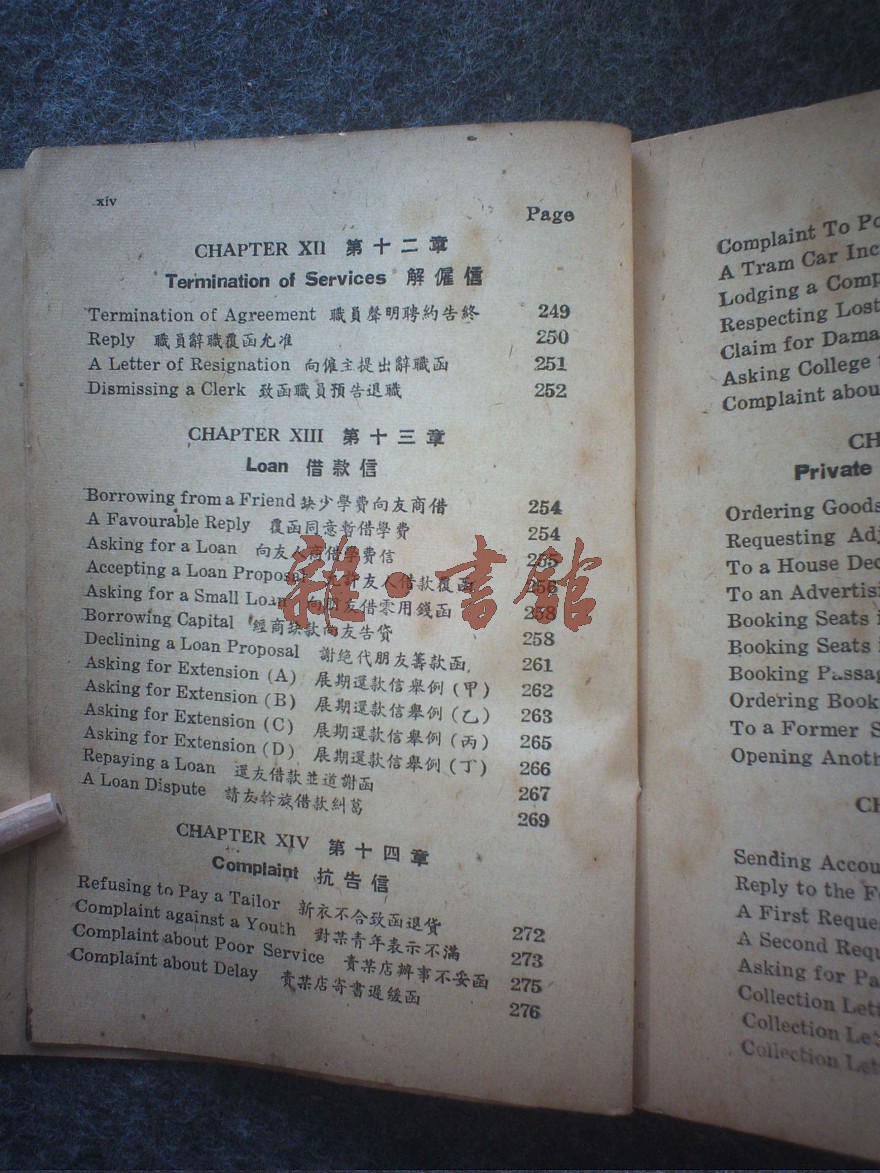 xiv
Page
CHAPTER XII 第十二章
Termination of Services 解僱信
Termination of Agreement 職員聲明聘約告終 249
Reply 職員辭職覆函允准 250
A Letter of Resignation 向僱主提出辭職函 251
Dismissing a Clerk 致函職員預告退職 252
CHAPTER XIII 第十三章
Loan 借款信
Borrowing from a Friend 缺少學費向友商借 254
A Favourable Reply 覆函同意暫借學費 254
Asking for a Loan 向友人商借學費信 255
Accepting a Loan Proposal 允許友人借款覆函 256
Asking for a Small Loan 向朋友借零用錢函 258
Borrowing Capital 經商缺款向友告貸 258
Declining a Loan Proposal 謝絕代朋友籌款函 261
Asking for Extension (A) 展期還款信舉例(甲) 262
Asking for Extension (B) 展期還款信舉例(乙) 263
Asking for Extension (C) 展期還款信舉例(丙) 265
Asking for Extension (D) 展期還款信舉例(丁) 266
Repaying a Loan 還友借款並道謝函 267
A Loan Dispute 請友幹旋借款糾葛 269
CHAPTER XIV 第十四章
Complaint 抗告信
Refusing to Pay a Tailor 新衣不合致函退貨 272
Complaint against a Youth 對某青年表示不滿 273
Complaint about Poor Service 責某店辦事不妥函 275
Complaint about Delay 責某店寄書遲緩函 276
雜·書館
Complaint To Po
A Tram Car Inc
Lodging a Comp
Respecting Lost
Claim for Dama
Asking College
Complaint abou
CH
Private
Ordering Goods
Requesting Adj
To a House Dec
To an Advertisi
Booking Seats i
Booking Seats i
Booking Passag
Ordering Book
To a Former S
Opening Anoth
CH
Sending Accou
Reply to the Fo
A First Reque
A Second Requ
Asking for Pa
Collection Lett
Collection Let
Collection Let